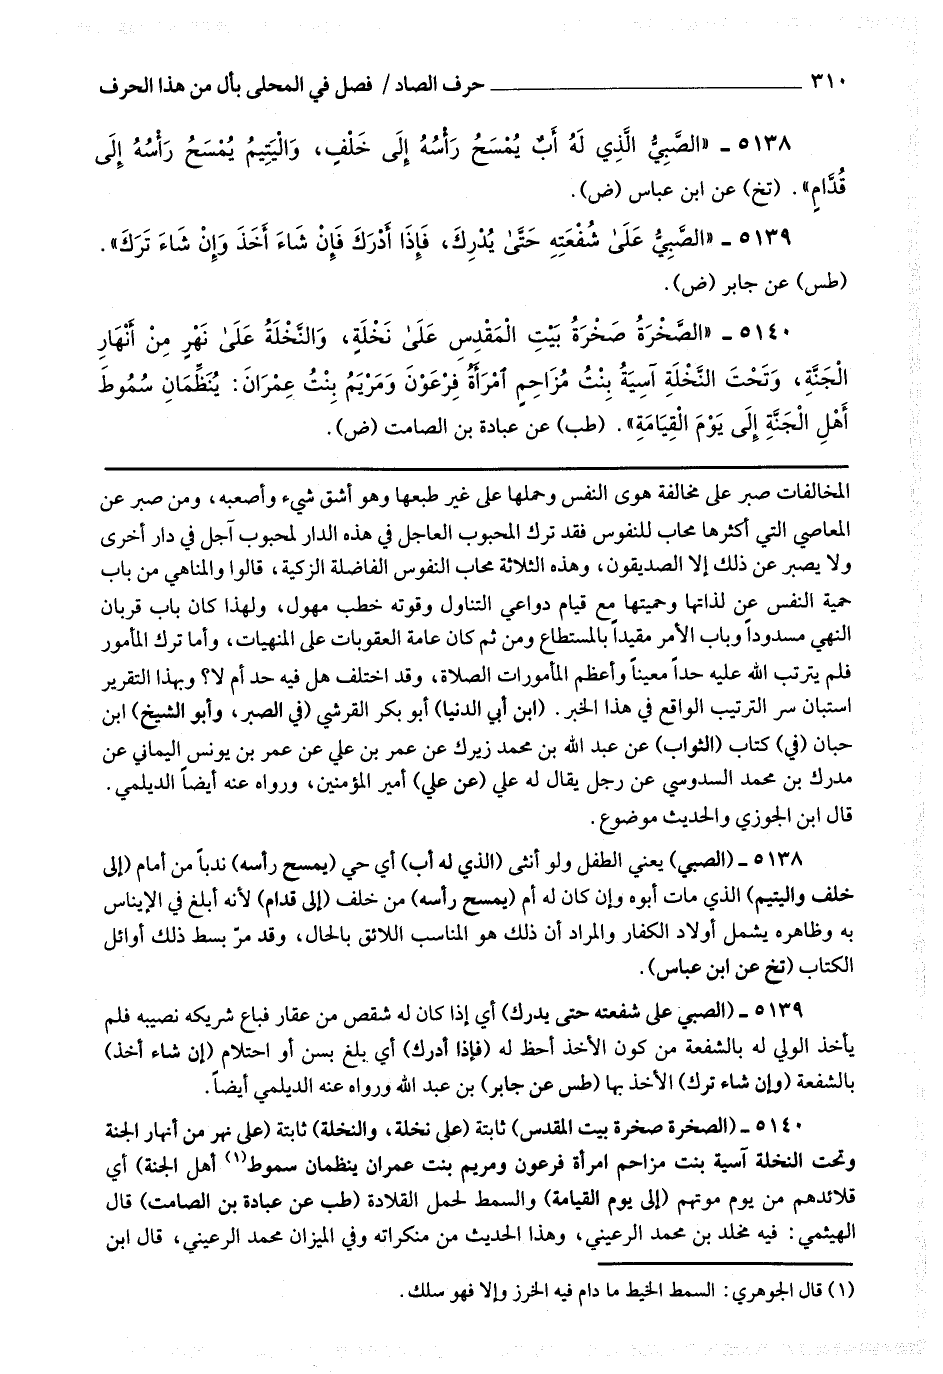 ٣١٠ حرف الصاد/ فصل في المحلى بأل من هذا الحرف
٥١٣٨ ـ «الصَّبِيُّ الَّذِي لَهُ أَبٌ يُمْسَحُ رَأْسُهُ إِلَى خَلْفٍ، وَالْيَتِيمُ يُمْسَحُ رَأْسُهُ إِلَى
قُدَّامٍ». (تخ) عن ابن عباس (ض).
٥١٣٩ ـ «الصَّبِيُّ عَلَىٰ شُفْعَتِهِ حَتَّىٰ يُدْرِكَ، فَإِذَا أَدْرَكَ فَإِنْ شَاءَ أَخَذَ وَإِنْ شَاءَ تَرَكَ».
(طس) عن جابر (ض).
٥١٤٠ ـ «الصَّخْرَةُ صَخْرَةُ بَيْتِ الْمَقْدِسِ عَلَىٰ نَخْلَةٍ، وَالنَّخْلَةُ عَلَىٰ نَهْرٍ مِنْ أَنْهَارِ
الْجَنَّةِ، وَتَحْتَ النَّخْلَةِ آسِيَةُ بِنْتُ مُزَاحِمٍ ٱمْرَأَةُ فِرْعَوْنَ وَمَرْيَمُ بِنْتُ عِمْرَانَ: يُنَظِّمَانِ سُمُوطَ
أَهْلِ الْجَنَّةِ إِلَى يَوْمَ الْقِيَامَةِ». (طب) عن عبادة بن الصامت (ض).
المخالفات صبر على مخالفة هوى النفس وحملها على غير طبعها وهو أشق شيء وأصعبه، ومن صبر عن
المعاصي التي أكثرها محاب للنفوس فقد ترك المحبوب العاجل في هذه الدار لمحبوب آجل في دار أخرى
ولا يصبر عن ذلك إلا الصديقون، وهذه الثلاثة محاب النفوس الفاضلة الزكية، قالوا والمناهي من باب
حمية النفس عن لذاتها وحميتها مع قيام دواعي التناول وقوته خطب مهول، ولهذا كان باب قربان
النهي مسدوداً وباب الأمر مقيداً بالمستطاع ومن ثم كان عامة العقوبات على المنهيات، وأما ترك المأمور
فلم يترتب الله عليه حداً معيناً وأعظم المأمورات الصلاة، وقد اختلف هل فيه حد أم لا؟ وبهذا التقرير
استبان سر الترتيب الواقع في هذا الخبر. (ابن أبي الدنيا) أبو بكر القرشي (في الصبر، وأبو الشيخ) ابن
حبان (في) كتاب (الثواب) عن عبد الله بن محمد زيرك عن عمر بن علي عن عمر بن يونس اليماني عن
مدرك بن محمد السدوسي عن رجل يقال له علي (عن علي) أمير المؤمنين، ورواه عنه أيضاً الديلمي.
قال ابن الجوزي والحديث موضوع.
٥١٣٨ ـ (الصبي) يعني الطفل ولو أنثى (الذي له أب) أي حي (يمسح رأسه) ندباً من أمام (إلى
خلف واليتيم) الذي مات أبوه وإن كان له أم (يمسح رأسه) من خلف (إلى قدام) لأنه أبلغ في الإيناس
به وظاهره يشمل أولاد الكفار والمراد أن ذلك هو المناسب اللائق بالحال، وقد مرّ بسط ذلك أوائل
الكتاب (تخ عن ابن عباس).
٥١٣٩ ـ (الصبي على شفعته حتى يدرك) أي إذا كان له شقص من عقار فباع شريكه نصيبه فلم
يأخذ الولي له بالشفعة من كون الأخذ أحظ له (فإذا أدرك) أي بلغ بسن أو احتلام (إن شاء أخذ)
بالشفعة (وإن شاء ترك) الأخذ بها (طس عن جابر) بن عبد الله ورواه عنه الديلمي أيضاً.
٥١٤٠ ـ (الصخرة صخرة بيت المقدس) ثابتة (على نخلة، والنخلة) ثابتة (على نهر من أنهار الجنة
وتحت النخلة آسية بنت مزاحم امرأة فرعون ومريم بنت عمران ينظمان سموط(١) أهل الجنة) أي
قلائدهم من يوم موتهم (إلى يوم القيامة) والسمط لحمل القلادة (طب عن عبادة بن الصامت) قال
الهيثمي: فيه مخلد بن محمد الرعيني، وهذا الحديث من منكراته وفي الميزان محمد الرعيني، قال ابن
(١) قال الجوهري: السمط الخيط ما دام فيه الخرز وإلا فهو سلك.